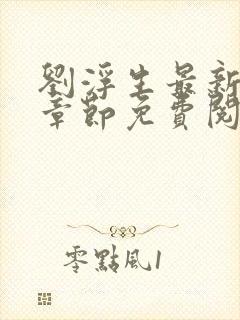 劉浮生最新
章節免費閱
零點風1